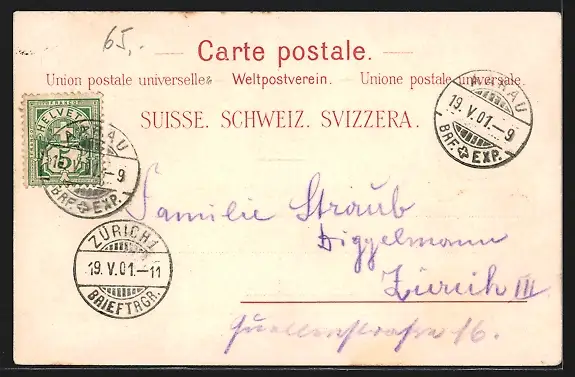 65,-
Carte postale.
Union postale universelle. Weltpostverein. Unione postale universale.
SUISSE. SCHWEIZ. SVIZZERA.
HELVETIA
AARAU
19.V.01.-9
BRF. EXP.
AARAU
19.V.01.-9
BRF. EXP.
Familie Straub
Diggelmann
Zürich III.
Quellenstrasse 16.
ZÜRICH 1
19.V.01.-11
BRIEFTRGR.